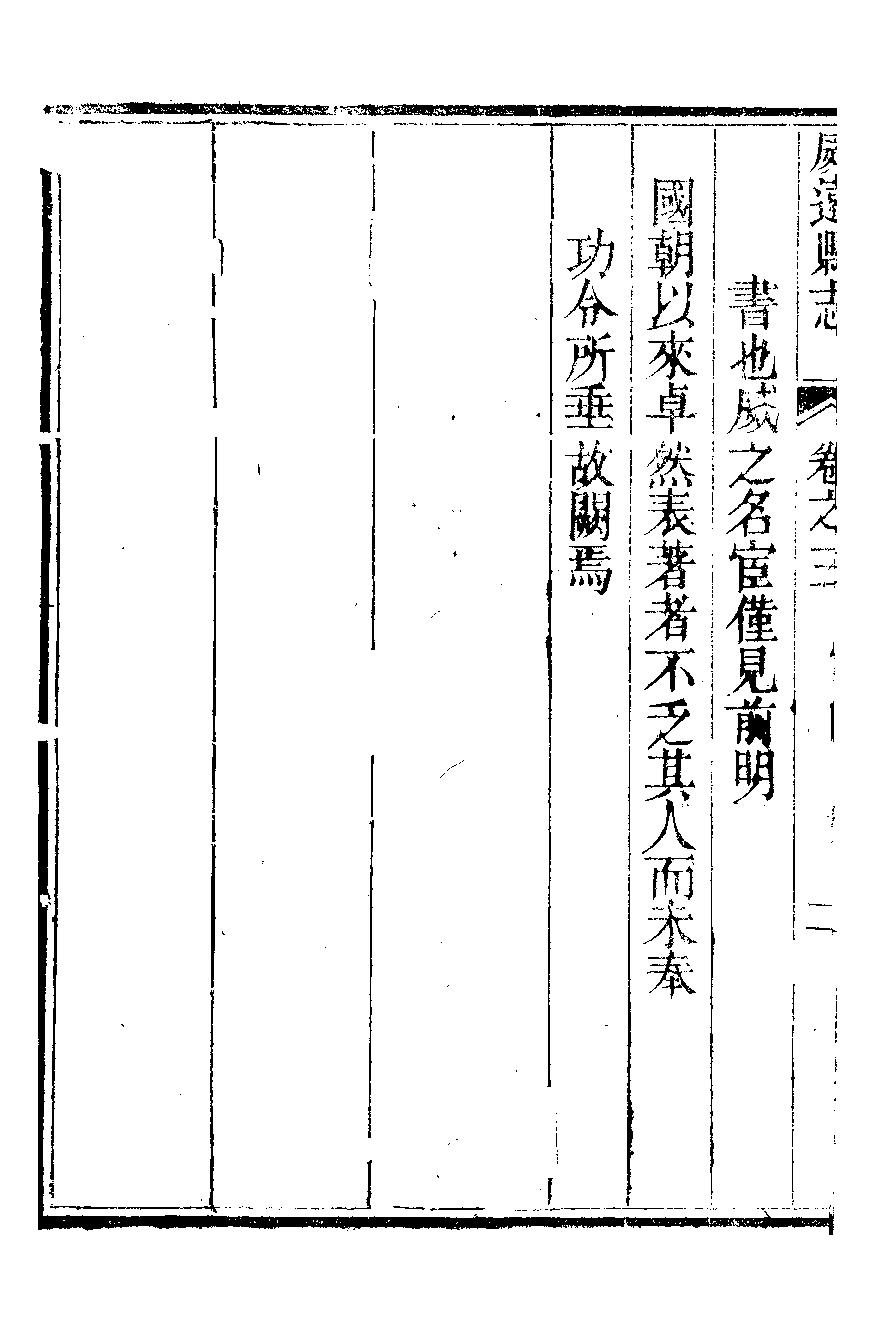 威遠縣志 卷之三 二
書也威之名宦僅見前明
國朝以來卓然表著者不乏其人而未奉
功令所垂故闕焉